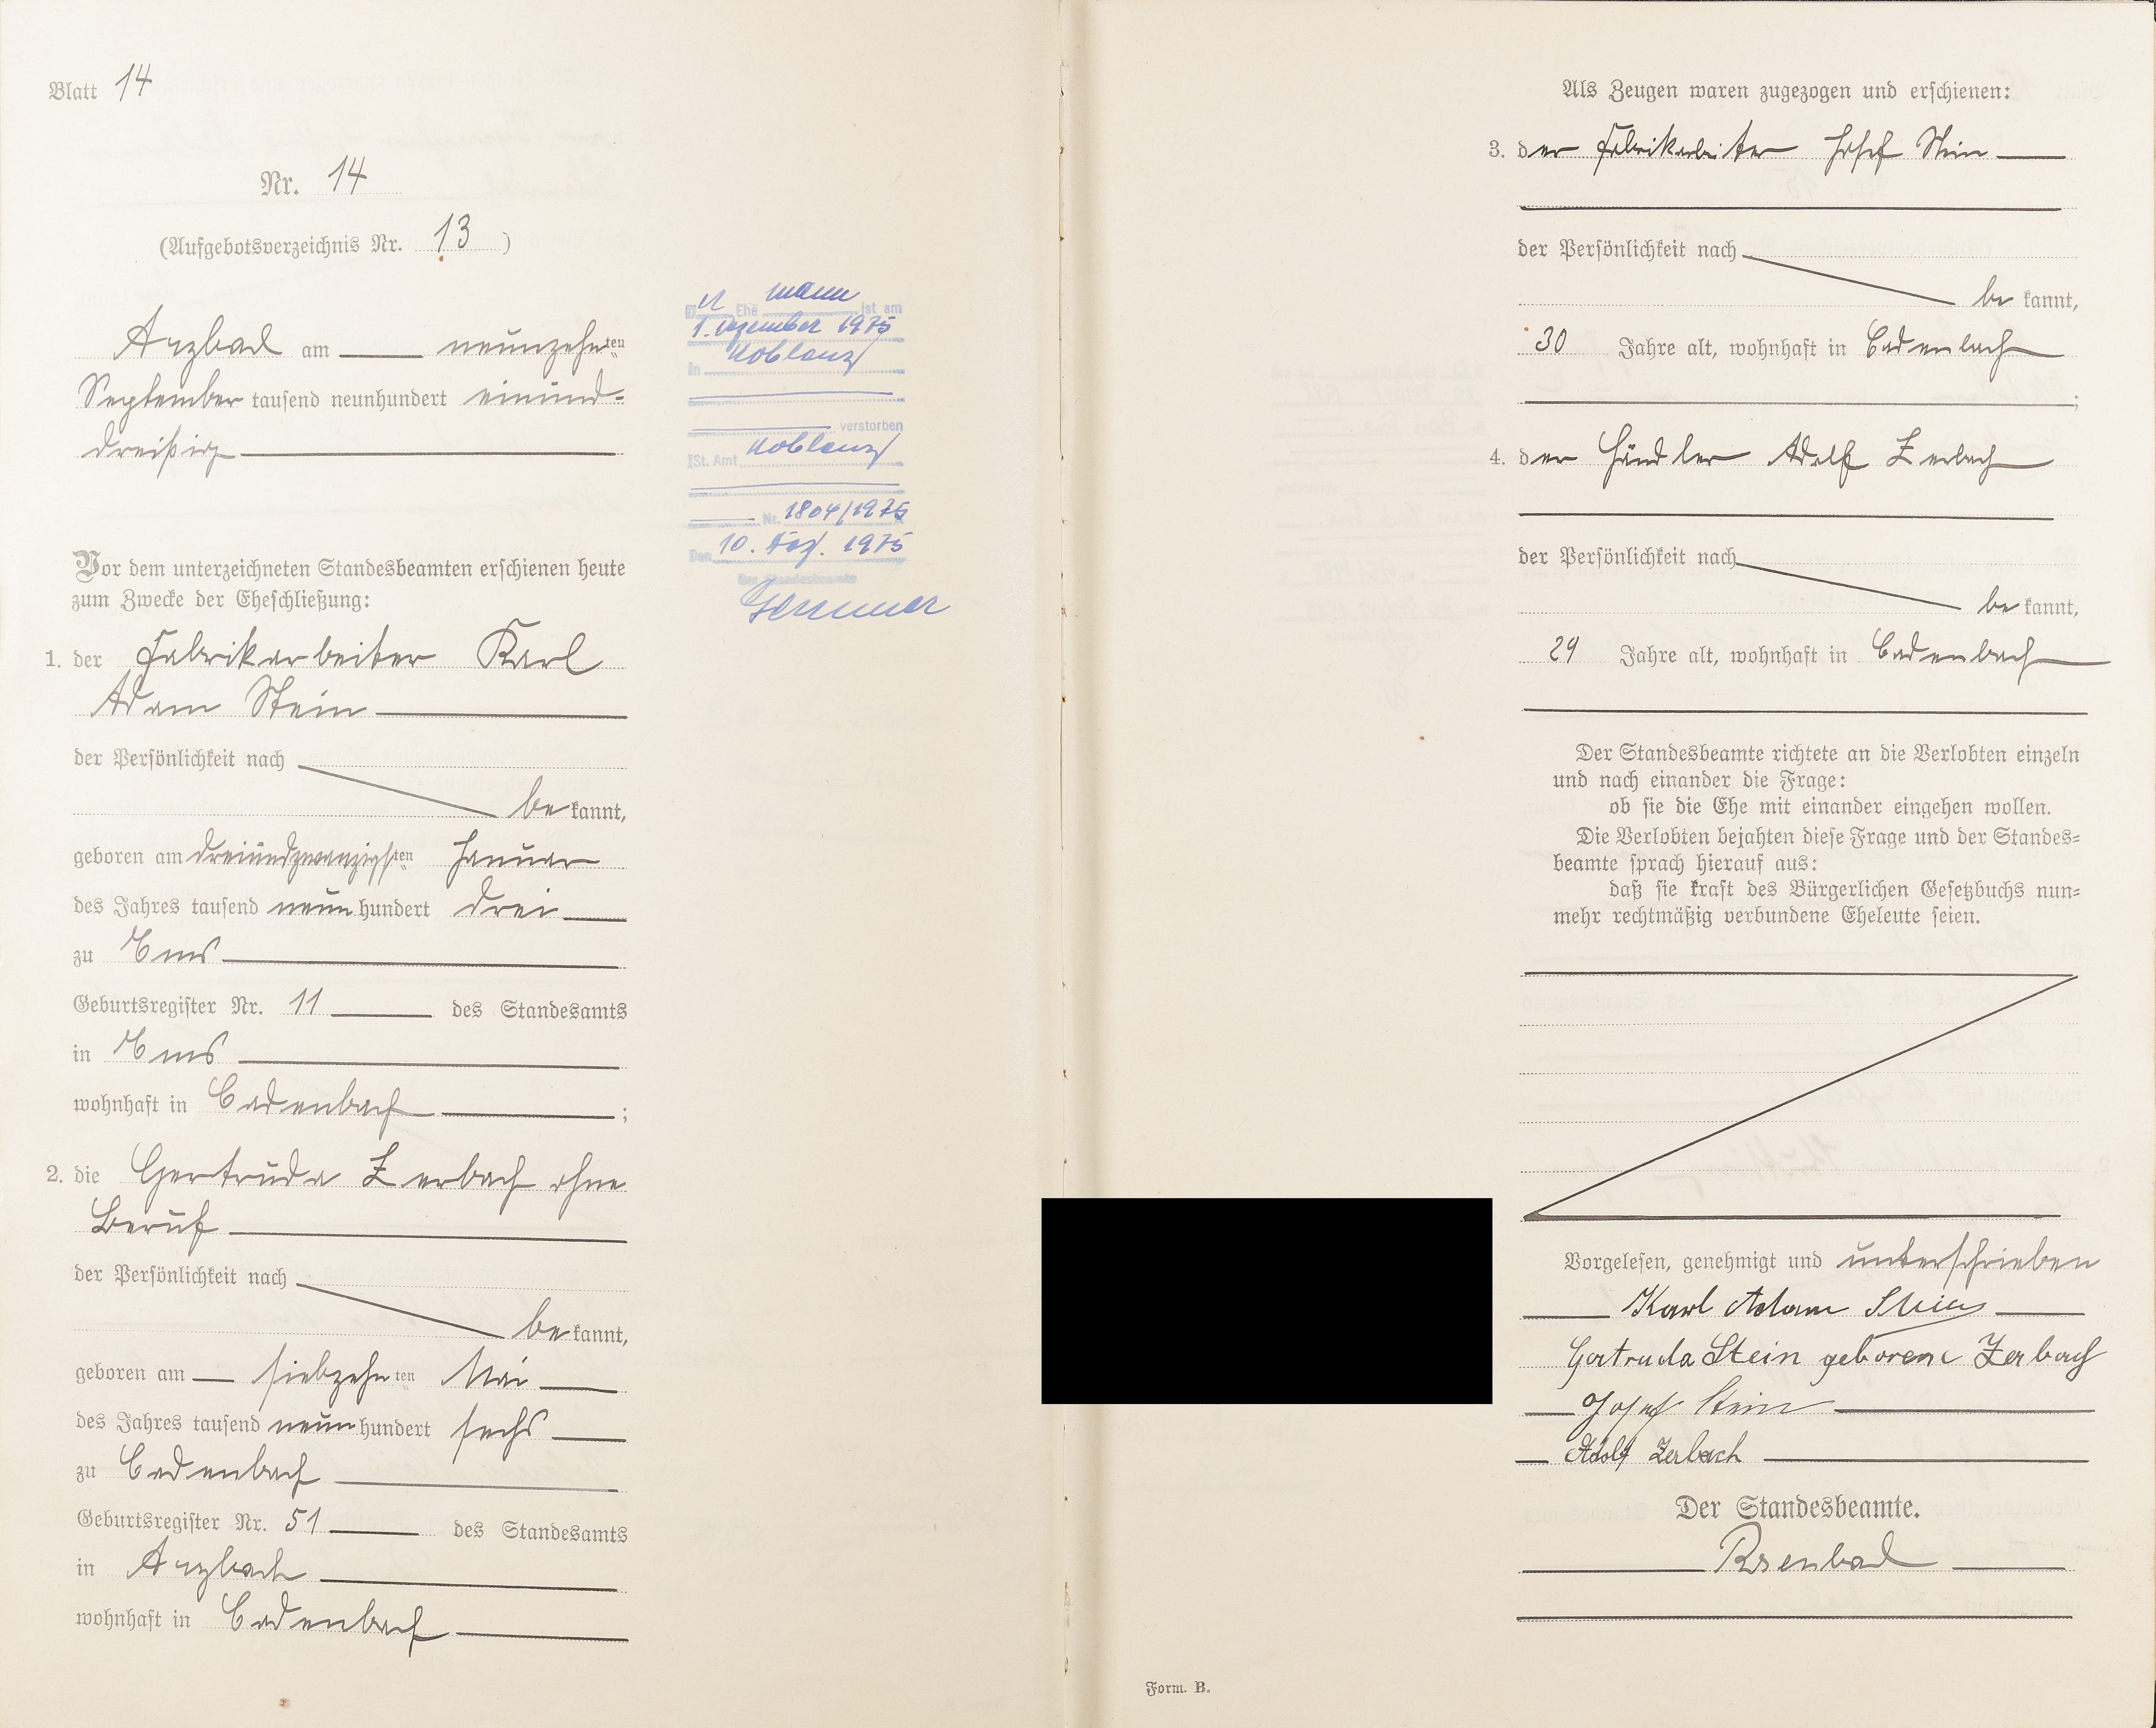 Blatt 14
Nr. 14
(Aufgebotsverzeichnis Nr. 13)
Arzbach am neunzehnten
September tausend neunhundert einund-
dreißig
Vor dem unterzeichneten Standesbeamten erschienen heute
zum Zwecke der Eheschließung:
1. der Fabrikarbeiter Karl
Adam Stein
der Persönlichkeit nach
bekannt,
geboren am dreiundzwanzigsten Januar
des Jahres tausend neunhundert drei
zu Ems
Geburtsregister Nr. 11 des Standesamts
in Ems
wohnhaft in Cadenbach;
2. die Gertruda Zerbach ohne
Beruf
der Persönlichkeit nach
bekannt,
geboren am siebzehnten Mai
des Jahres tausend neunhundert sechs
zu Cadenbach
Geburtsregister Nr. 51 des Standesamts
in Arzbach
wohnhaft in Cadenbach
Ehemann ist am
1. Dezember 1975
in Koblenz
verstorben
St. Amt Koblenz
Nr. 1804/1975
Den 10. Dez. 1975
Der Standesbeamte
Als Zeugen waren zugezogen und erschienen:
3. der Fabrikarbeiter Josef Stein
der Persönlichkeit nach
bekannt,
30 Jahre alt, wohnhaft in Cadenbach
;
4. der Händler Adolf Zerbach
der Persönlichkeit nach
bekannt,
29 Jahre alt, wohnhaft in Cadenbach
Der Standesbeamte richtete an die Verlobten einzeln
und nach einander die Frage:
ob sie die Ehe mit einander eingehen wollen.
Die Verlobten bejahten diese Frage und der Standes-
beamte sprach hierauf aus:
daß sie kraft des Bürgerlichen Gesetzbuchs nun-
mehr rechtmäßig verbundene Eheleute seien.
Vorgelesen, genehmigt und unterschrieben
Karl Adam Stein
Gertruda Stein geborene Zerbach
Josef Stein
Adolf Zerbach
Der Standesbeamte.
Form. B.